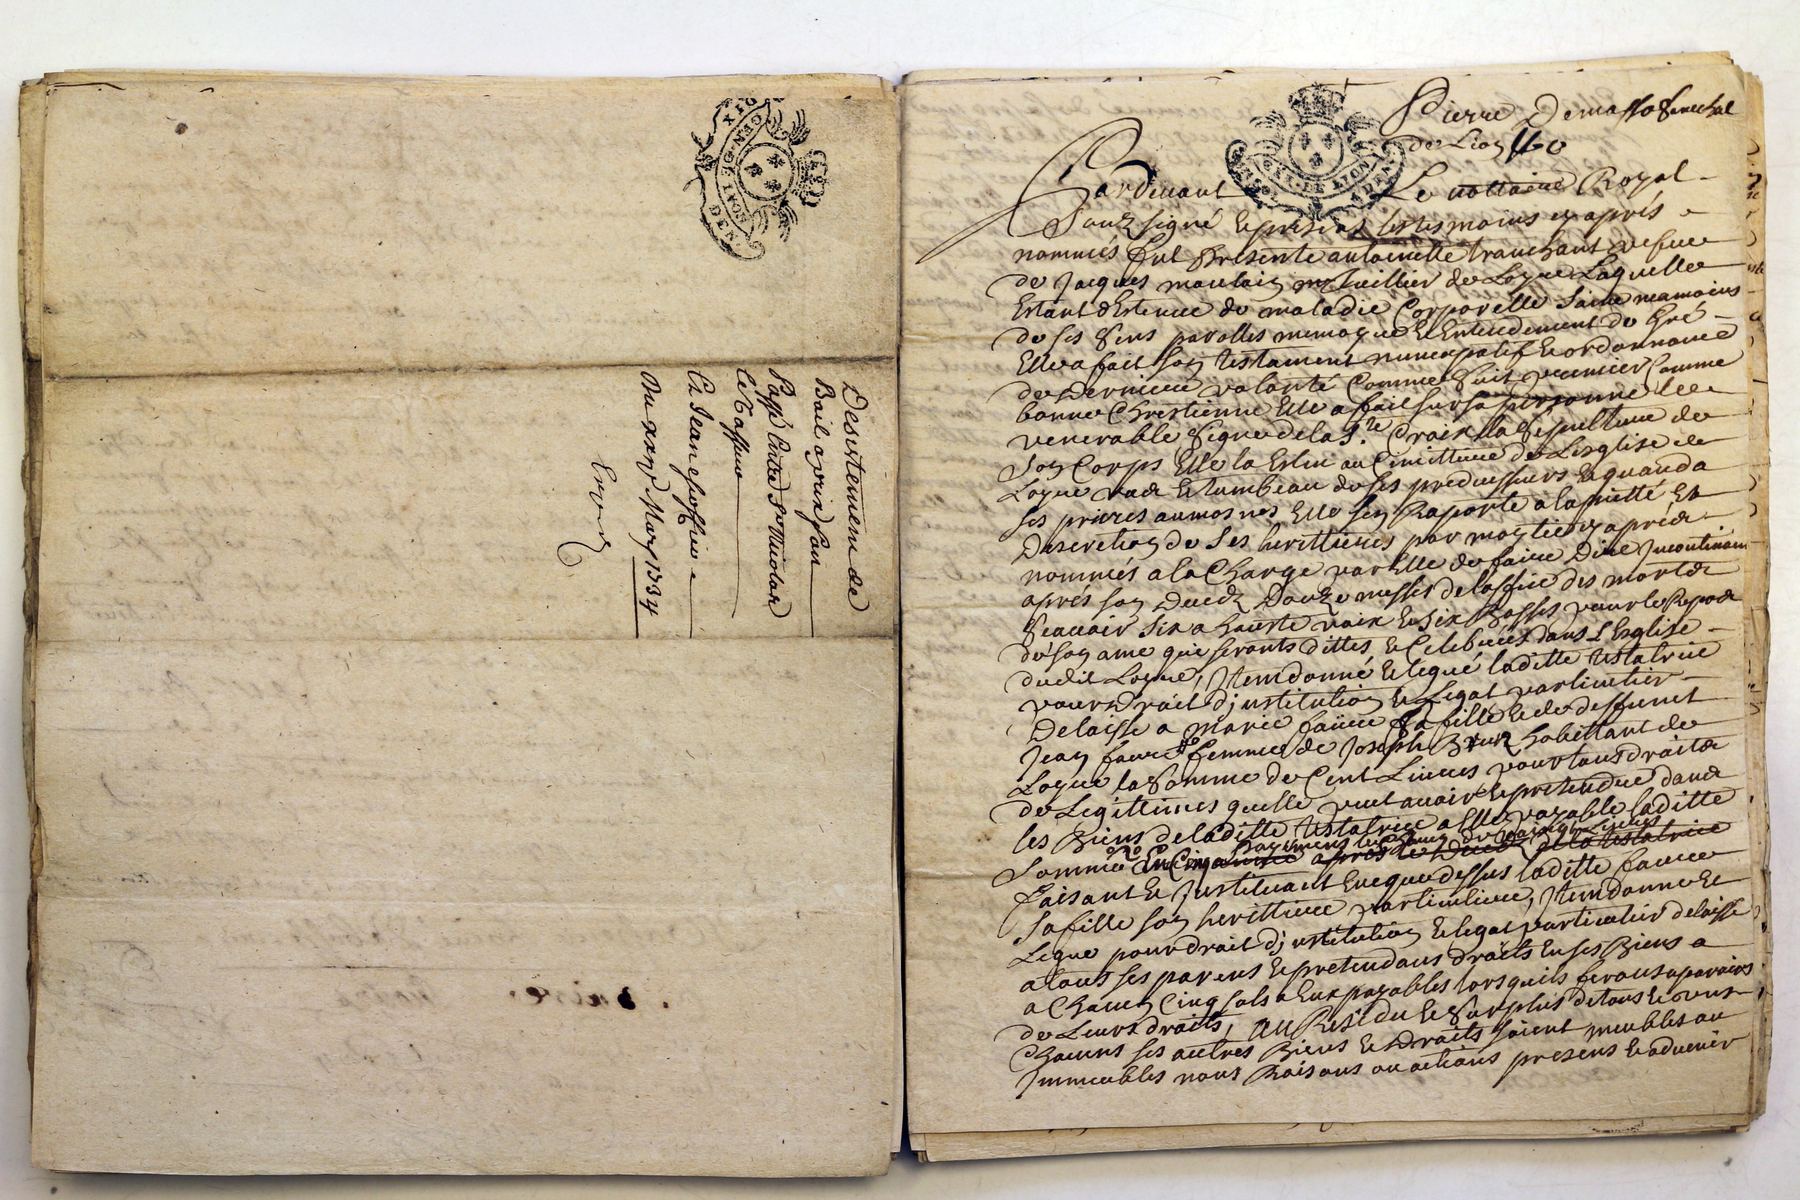 GEN DE LION
SIX DEN
Desistement de
Bail a prix fait
Passé Entre Sr Nicolas
Et Jean
Du xxve May 1734
Pierre Demasso Senechal
de Lion
GEN DE LION
SIX DEN
Pardevant Le nottaire Royal
Souzsigné & presens les tesmoins cy aprés
nommés fut presente antoinette tranchant vefue
de Jacques de Loyse Laquelle
Estant detenue de maladie Corporelle saine neamoins
de ses sens parolles memoyre & Entendement de gré
Elle a fait son testament nuncupatif & ordonnance
de derniere volonté Comme suit premier Comme
bonne Chrestienne Elle a fait sur sa personne le
venerable signe de la Ste Croix la sepulture de
son Corps Elle la Eslu au Cimittiere de L'esglise de
Loyse & tumbeau de ses predecesseurs & quand a
ses prieres aumosnes Elle sen Raporte a la pietté &
Discretion de ses herittieres par moytié cy aprés
nommés a la Charge par Elle de faire Dire Incontinant
aprés son Decedz Douze messes de loffice des mortz
sçauoir six a haute voix & six Basses pour le Repos
de son ame qui seronts dittes & Celebrées dans L'Esglise
dudit Loyse, Item donné & legué laditte testatrice
pour droit d'institution & Legat particulier
Delaisse a marie faure sa fille & de deffunct
Jean faure femme de Joseph habittant de
Loyse la somme de Cent Liures pour tous droits
de Legittimes quelle peut auoir & pretendre dans
les Biens de laditte testatrice a Elle payable laditte
Somme En Cinq apres le Deced de la testatrice
faisant & Instituant En ce que dessus laditte faure
sa fille son herittiere particuliere, Item donne &
Legue pour droit d'institution & legat particulier delaisse
a tous ses parens & pretendans droits En ses Biens a
a Chacun Cinq sols a Eux payables lorsquils feront aparoirs
de Leurs droits, Au Residu & surplus de tous &
Chacuns ses autres Biens & Droits soient meubles ou
Immeubles noms Raisons ou actions presens & aduenir